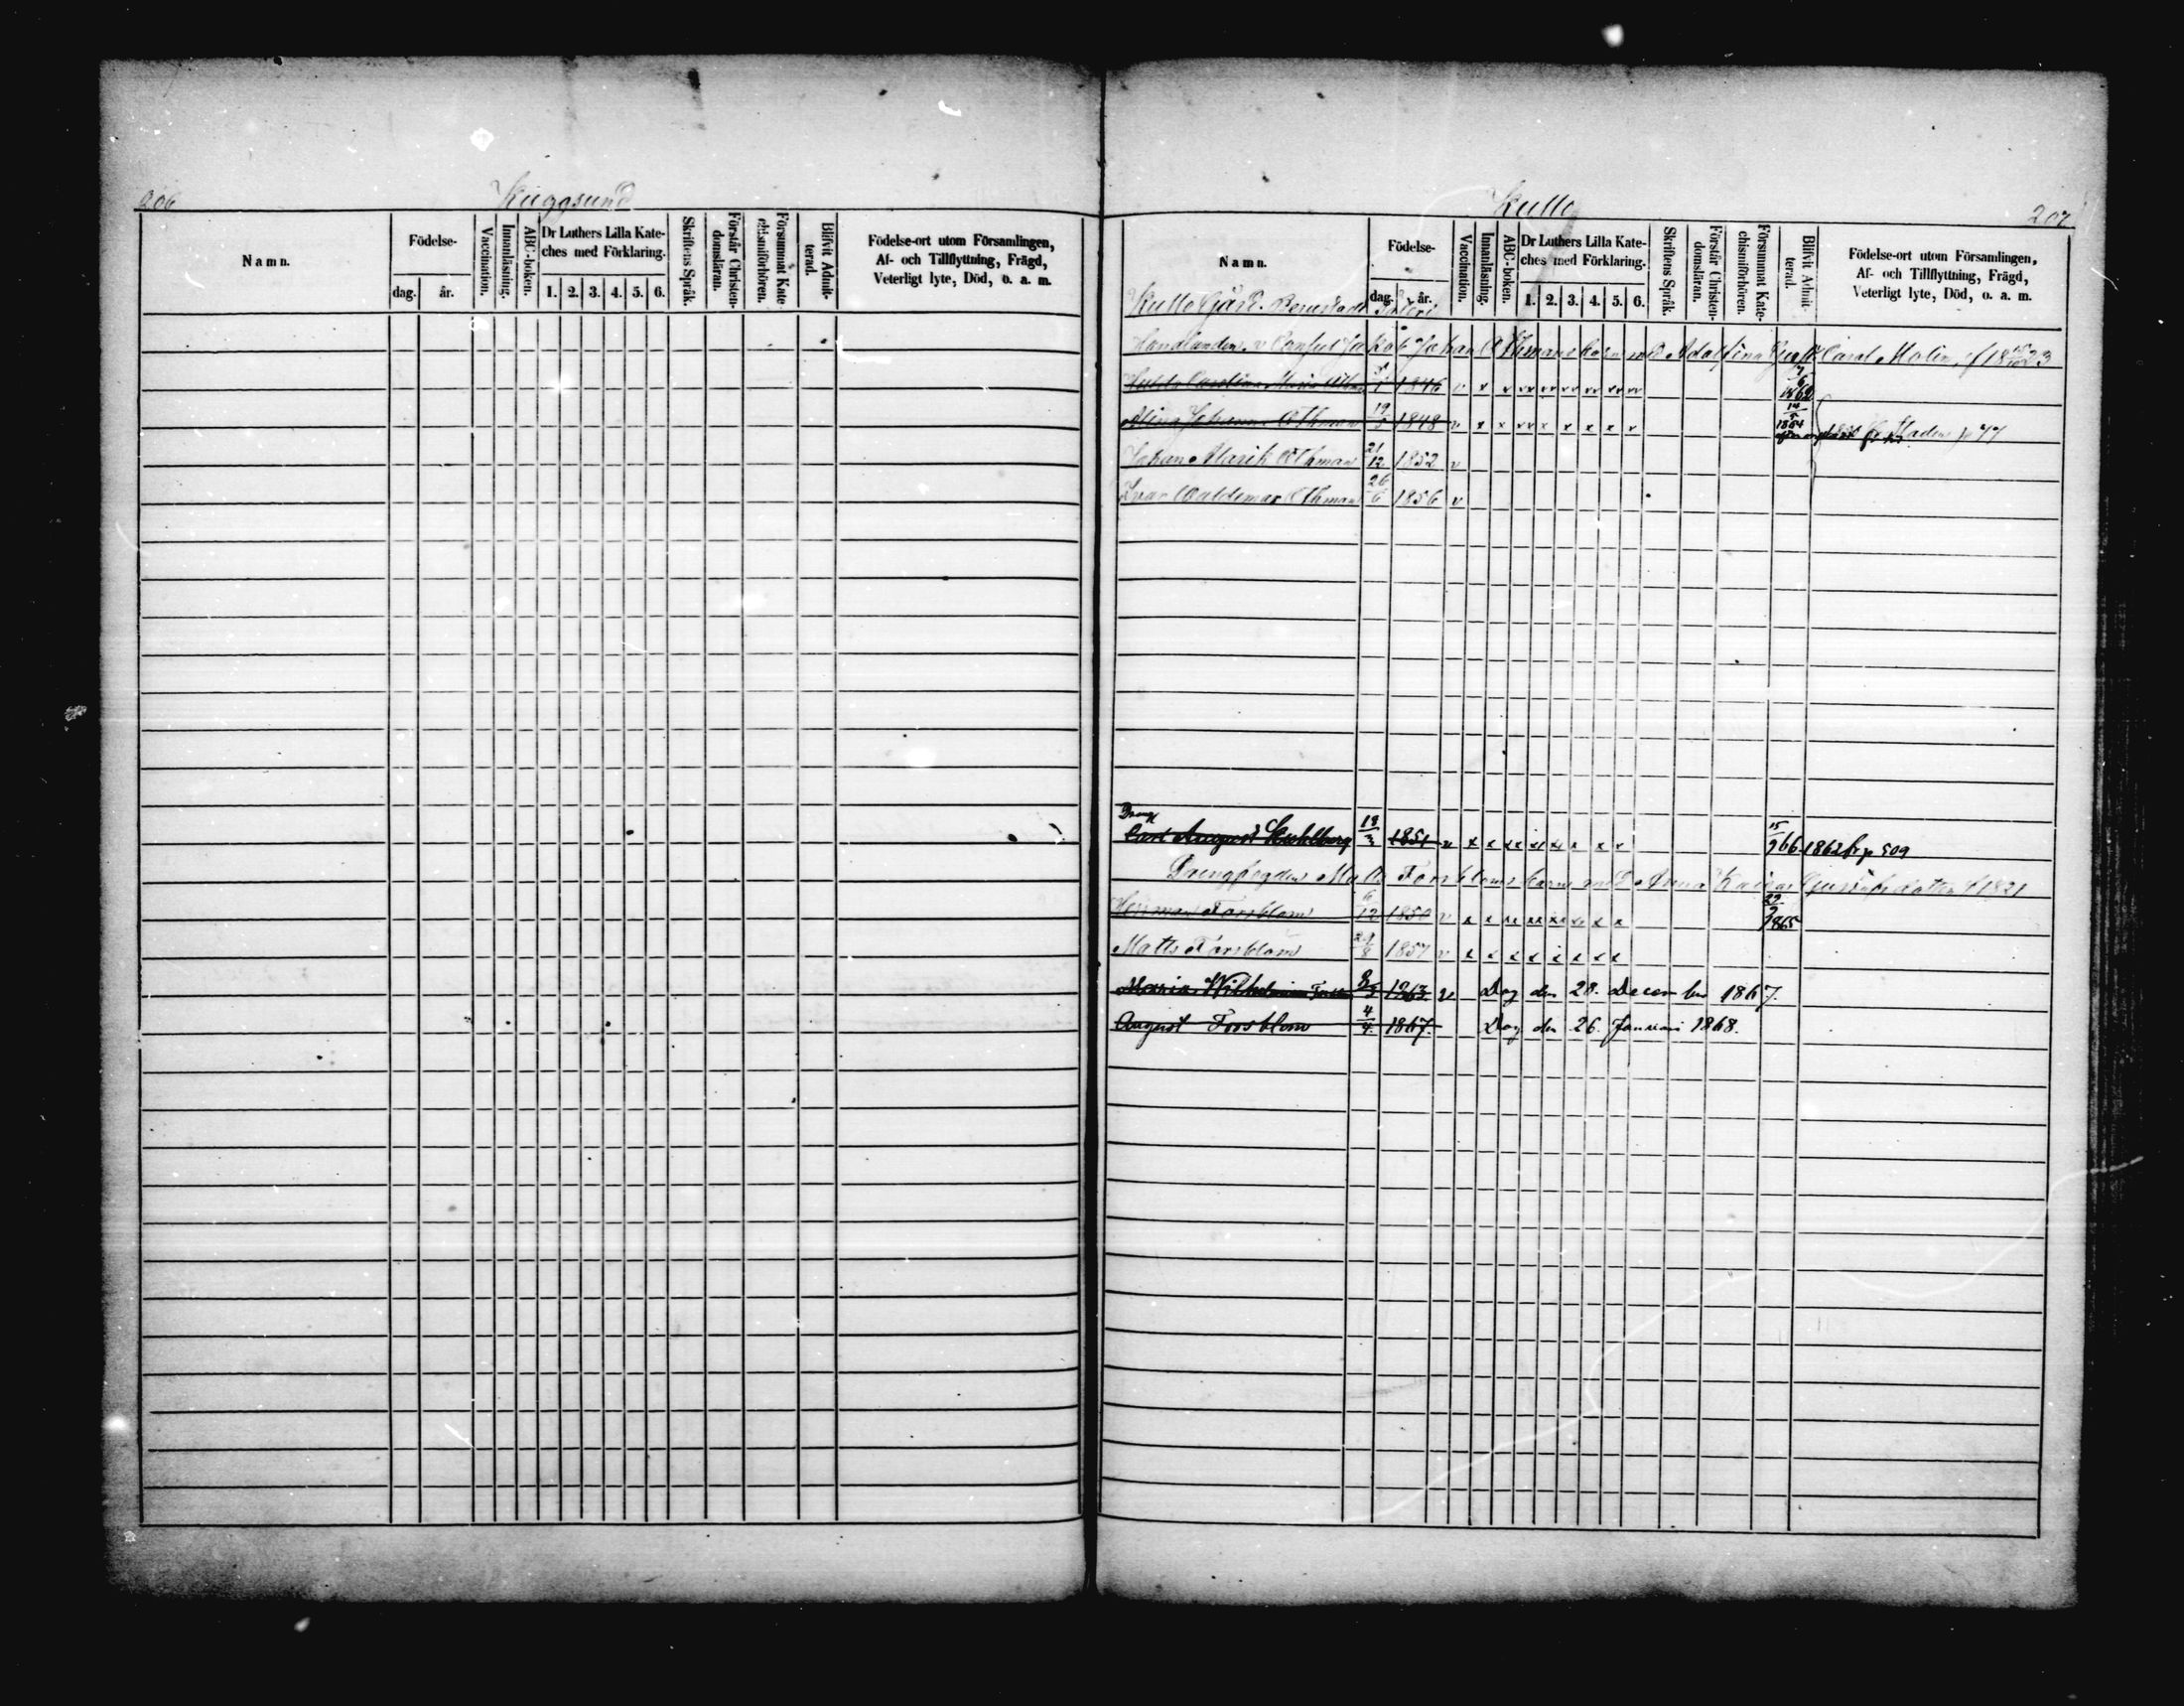 206
Kuggsund
Namn.
Födelse-
dag. år.
Vaccination.
Innanläsning.
ABC-boken.
Dr Luthers Lilla Kate-
ches med Förklaring.
1. 2. 3. 4. 5. 6.
Skriftens Språk.
Förstår Christen-
domsläran.
Försummat Kate
chismiförhören.
Blifvit Admit-
terad.
Födelse-ort utom Församlingen,
Af- och Tillflyttning, Frägd,
Veterligt lyte, Död, o. a. m.
Kullo
207
Namn.
Födelse-
dag. år.
Vaccination.
Innanläsning.
ABC-boken.
Dr Luthers Lilla Kate-
ches med Förklaring.
1. 2. 3. 4. 5. 6.
Skriftens Språk.
Förstår Christen-
domsläran.
Försummat Kate-
chismiförhören.
Blifvit Admit-
terad.
Födelse-ort utom Församlingen,
Af- och Tillflyttning, Frägd,
Veterligt lyte, Död, o. a. m.
Kullo Gård
Handlanden Consul Jakob Johan Öhmans barn med Adolfina Molin 1823
Carolina Maria 1846 v x x xx xx xx xx xx xx
Alina Johanna Öhman 19/5 1848 v x x xx x x x x x 14/5 1864
Johan Alarik Öhman 21/12 1852 v
Ivar Waldemar Öhman 26/6 1856 v
Dräng
Carl August Kuhlberg 18/3 1851 v x x xx xx x x x x 66 1862 fr p 509
Drängfogden Forsbloms barn med Anna Kaisa 1821
Herman Forsblom 6/12 1850 v x x xx xx xx x x x 1865
Matts Forsblom 21/8 1857 v x x x x x x x x
Maria Wilhelmina 1863 v Dog den 28. December 1867.
August Forsblom 4/4 1867. Dog den 26. Januari 1868.